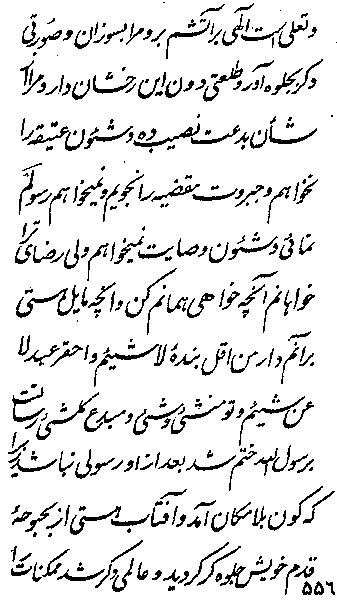 و تعلی است الهی بر آتشم برو مرا بسوزان و صورتی
دگر بجلوه آور و طلعتی دون این رخشان دار و مرا
شأن بدعت نصیب ده و شئون عتیقه را
نخواهم و جبروت مقضیه را نجویم و نمیخواهم رسولم
نمائی و شئون وصایت نمیخواهم ولی رضای ترا
خواهانم آنچه خواهی همانم کن و آنچه مایل هستی
برآنم دار من اقل بندهٔ لا شیئم و احقر عبد لا
عن شیئم و تو منشئ و مبدع کلشئی رسالت
برسول الله ختم شد بعد از او رسولی نباشد زیرا
که کون بلا مکان آمد و آفتاب هستی از بحبوحهٔ
قدم خویش جلوه گر گردید و عالمی دگر شد ممکنات را
۵۵۶